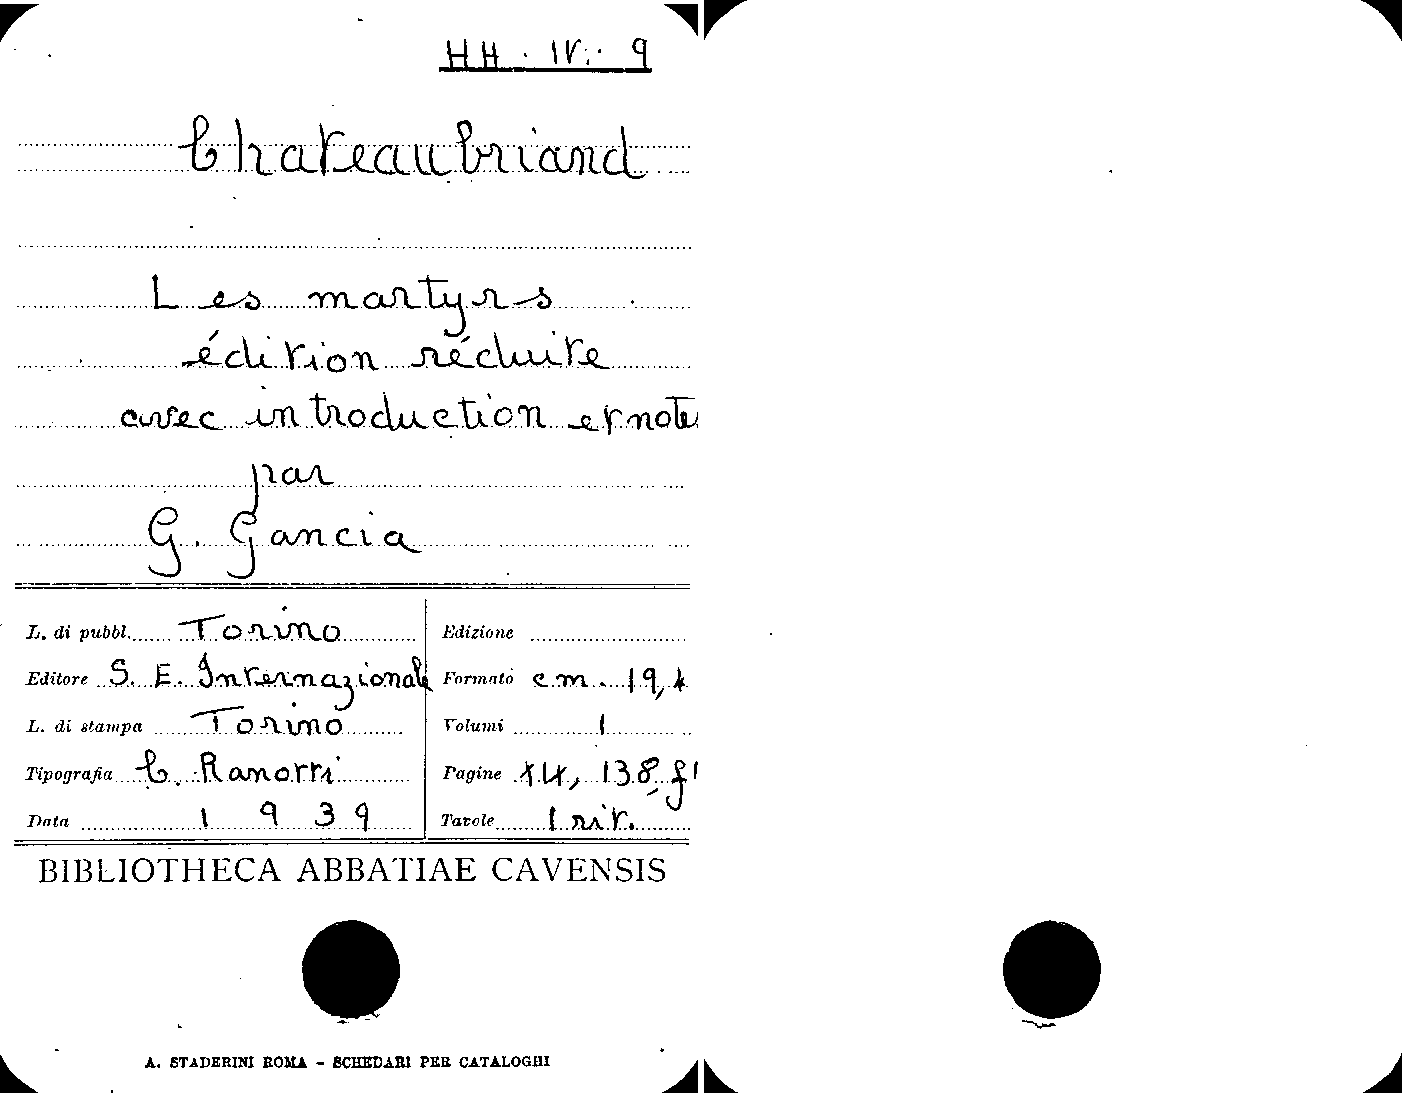 HH. IV. 9
Chateaubriand
Les martyrs
édition réduite
avec introduction et note
par
G. Gancia
L. di pubbl. Torino
Editore S. E. Internazionale
L. di stampa Torino
Tipografia C. Ranotti
Data 1939
Edizione
Formato cm. 19,4
Volumi 1
Pagine 138
Tavole 1 rit.
BIBLIOTHECA ABBATIAE CAVENSIS
A. STADERINI ROMA - SCHEDARI PER CATALOGHI